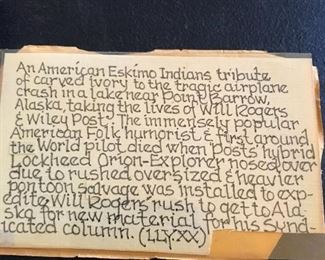 An American Eskimo Indians tribute
of carved ivory to the tragic airplane
crash in a lake near Point Barrow,
Alaska, taking the lives of Will Rogers
& Wiley Post. The immensely popular
American Folk humorist & first around
the World pilot died when Posts hybrid
Lockheed Orion-Explorer nosed over
due to rushed oversized & heavier
pontoon salvage was installed to exp-
edite Will Rogers' rush to get to Ala-
ska for new material for his synd-
icated column (LLYXX)